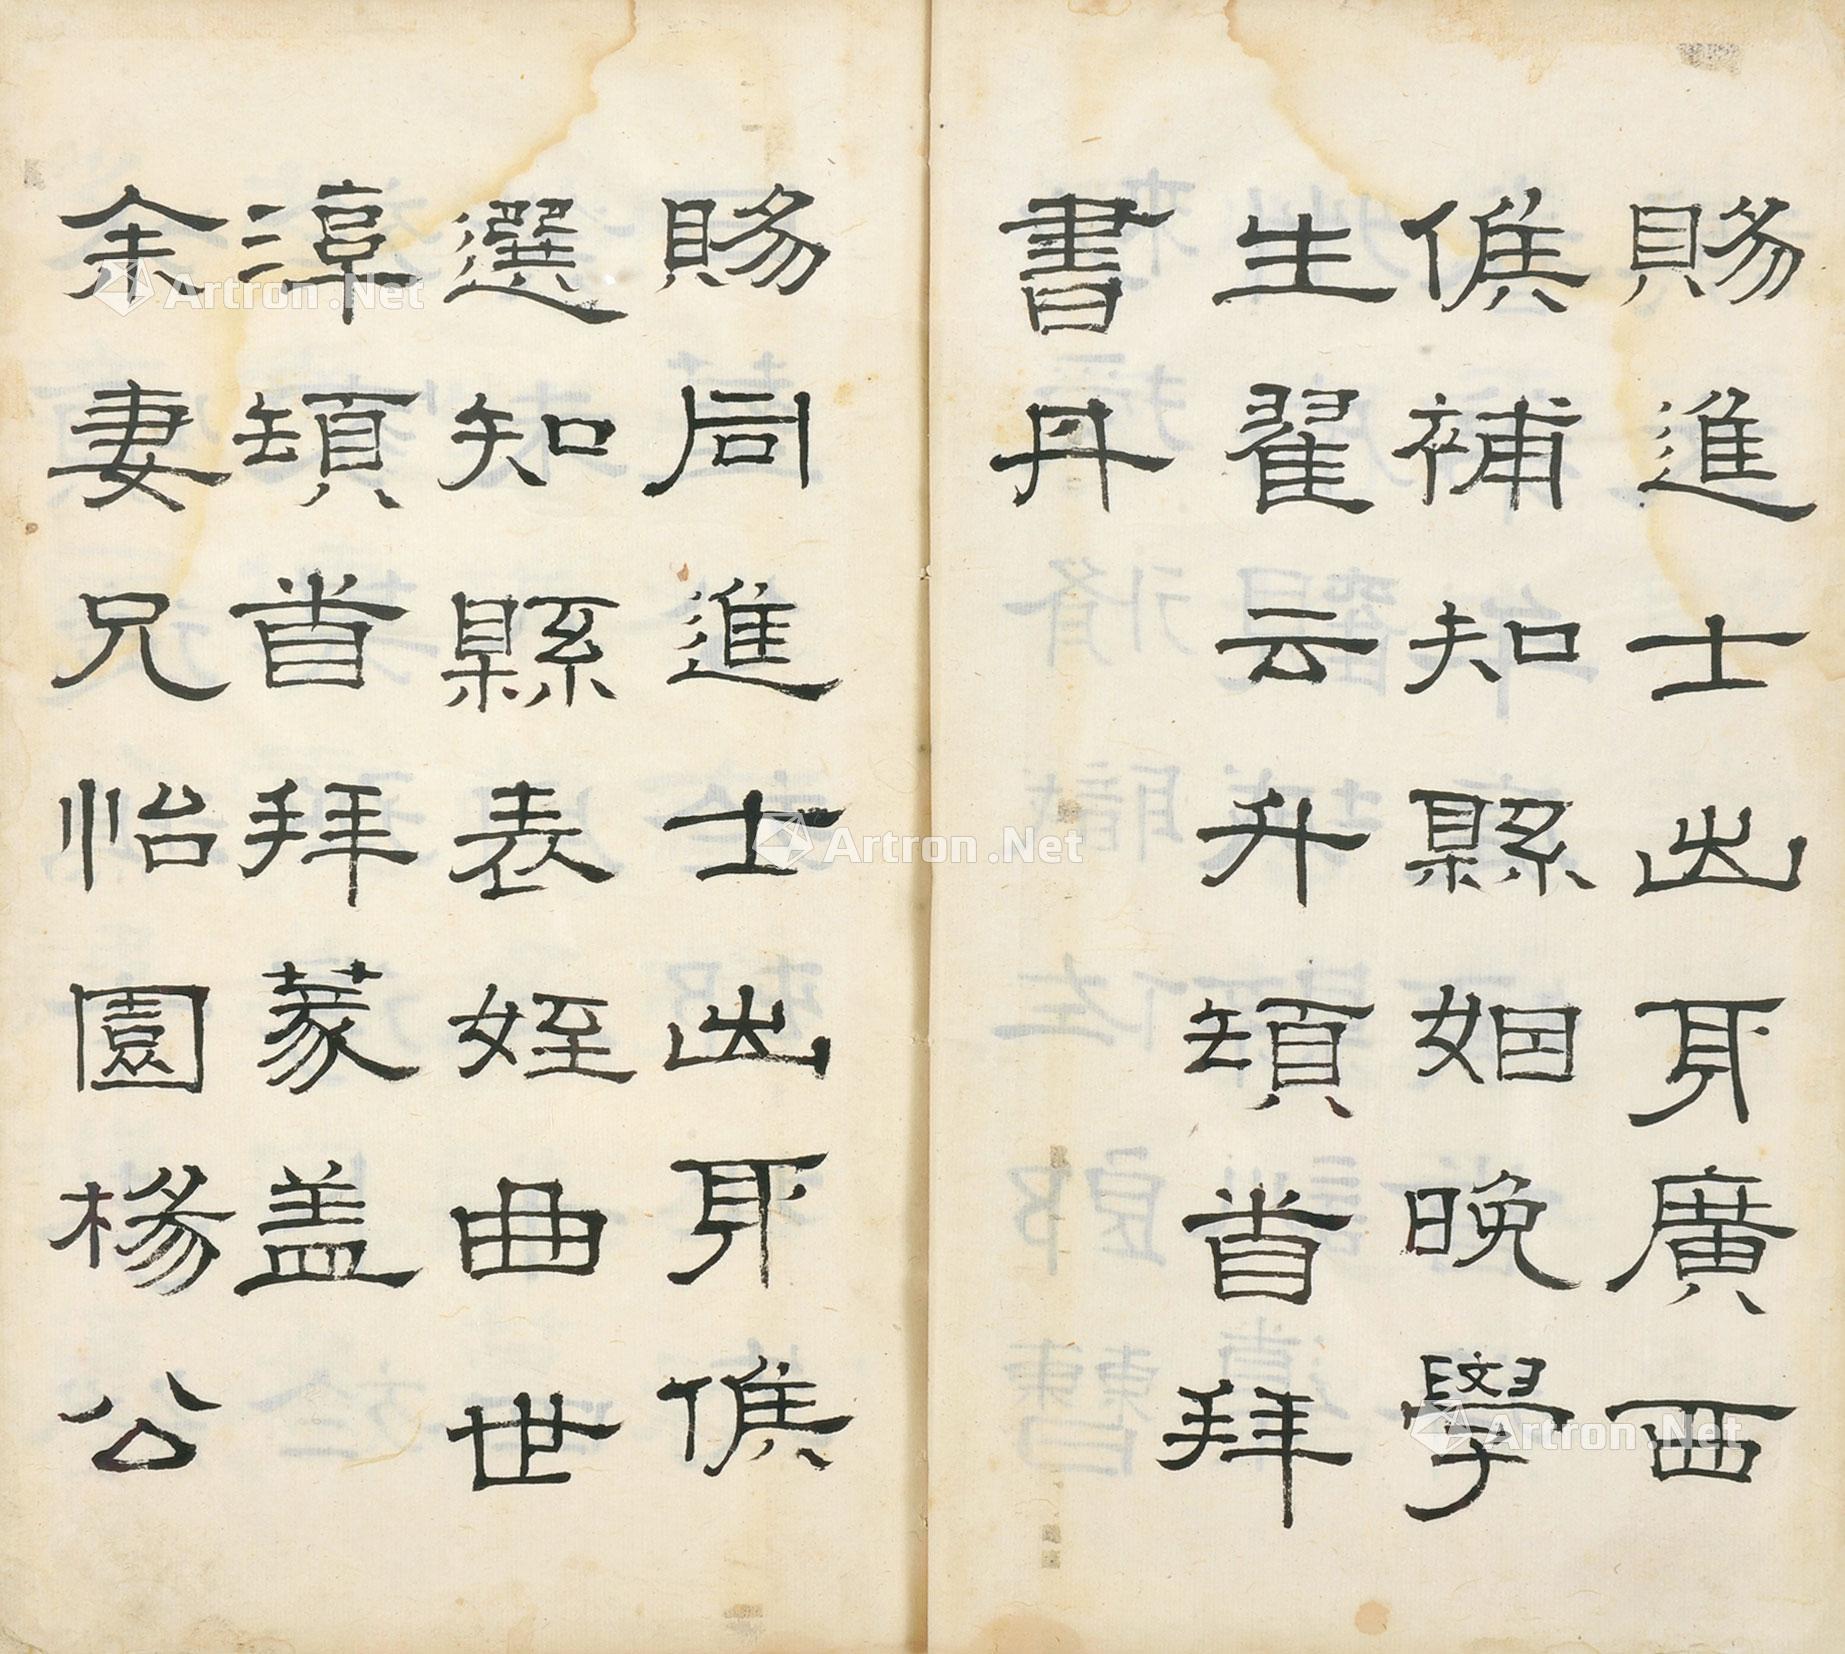 賜進士出身廣西
候補知縣姻晚學
生翟云升頓首拜
書丹
賜同進士出身候
選知縣表姪曲世
淳頓首拜篆盖
余妻兄怡園楊公
Artron.Net
Artron.Net
Artron.Net